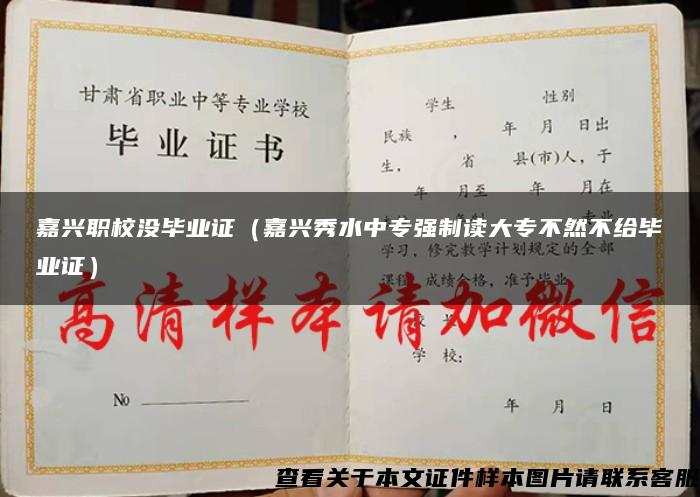 甘肃省职业中等专业学校
毕业证书
No
学生 性别
民族 ， 年 月 日出
生， 省 县(市)人，于
年 月至 年 月在
专业
学习，修完教学计划规定的全部
课程，成绩合格，准予毕业
学 校：
年 月 日
嘉兴职校没毕业证（嘉兴秀水中专强制读大专不然不给毕
业证）
高清样本请加微信
查看关于本文证件样本图片请联系客服